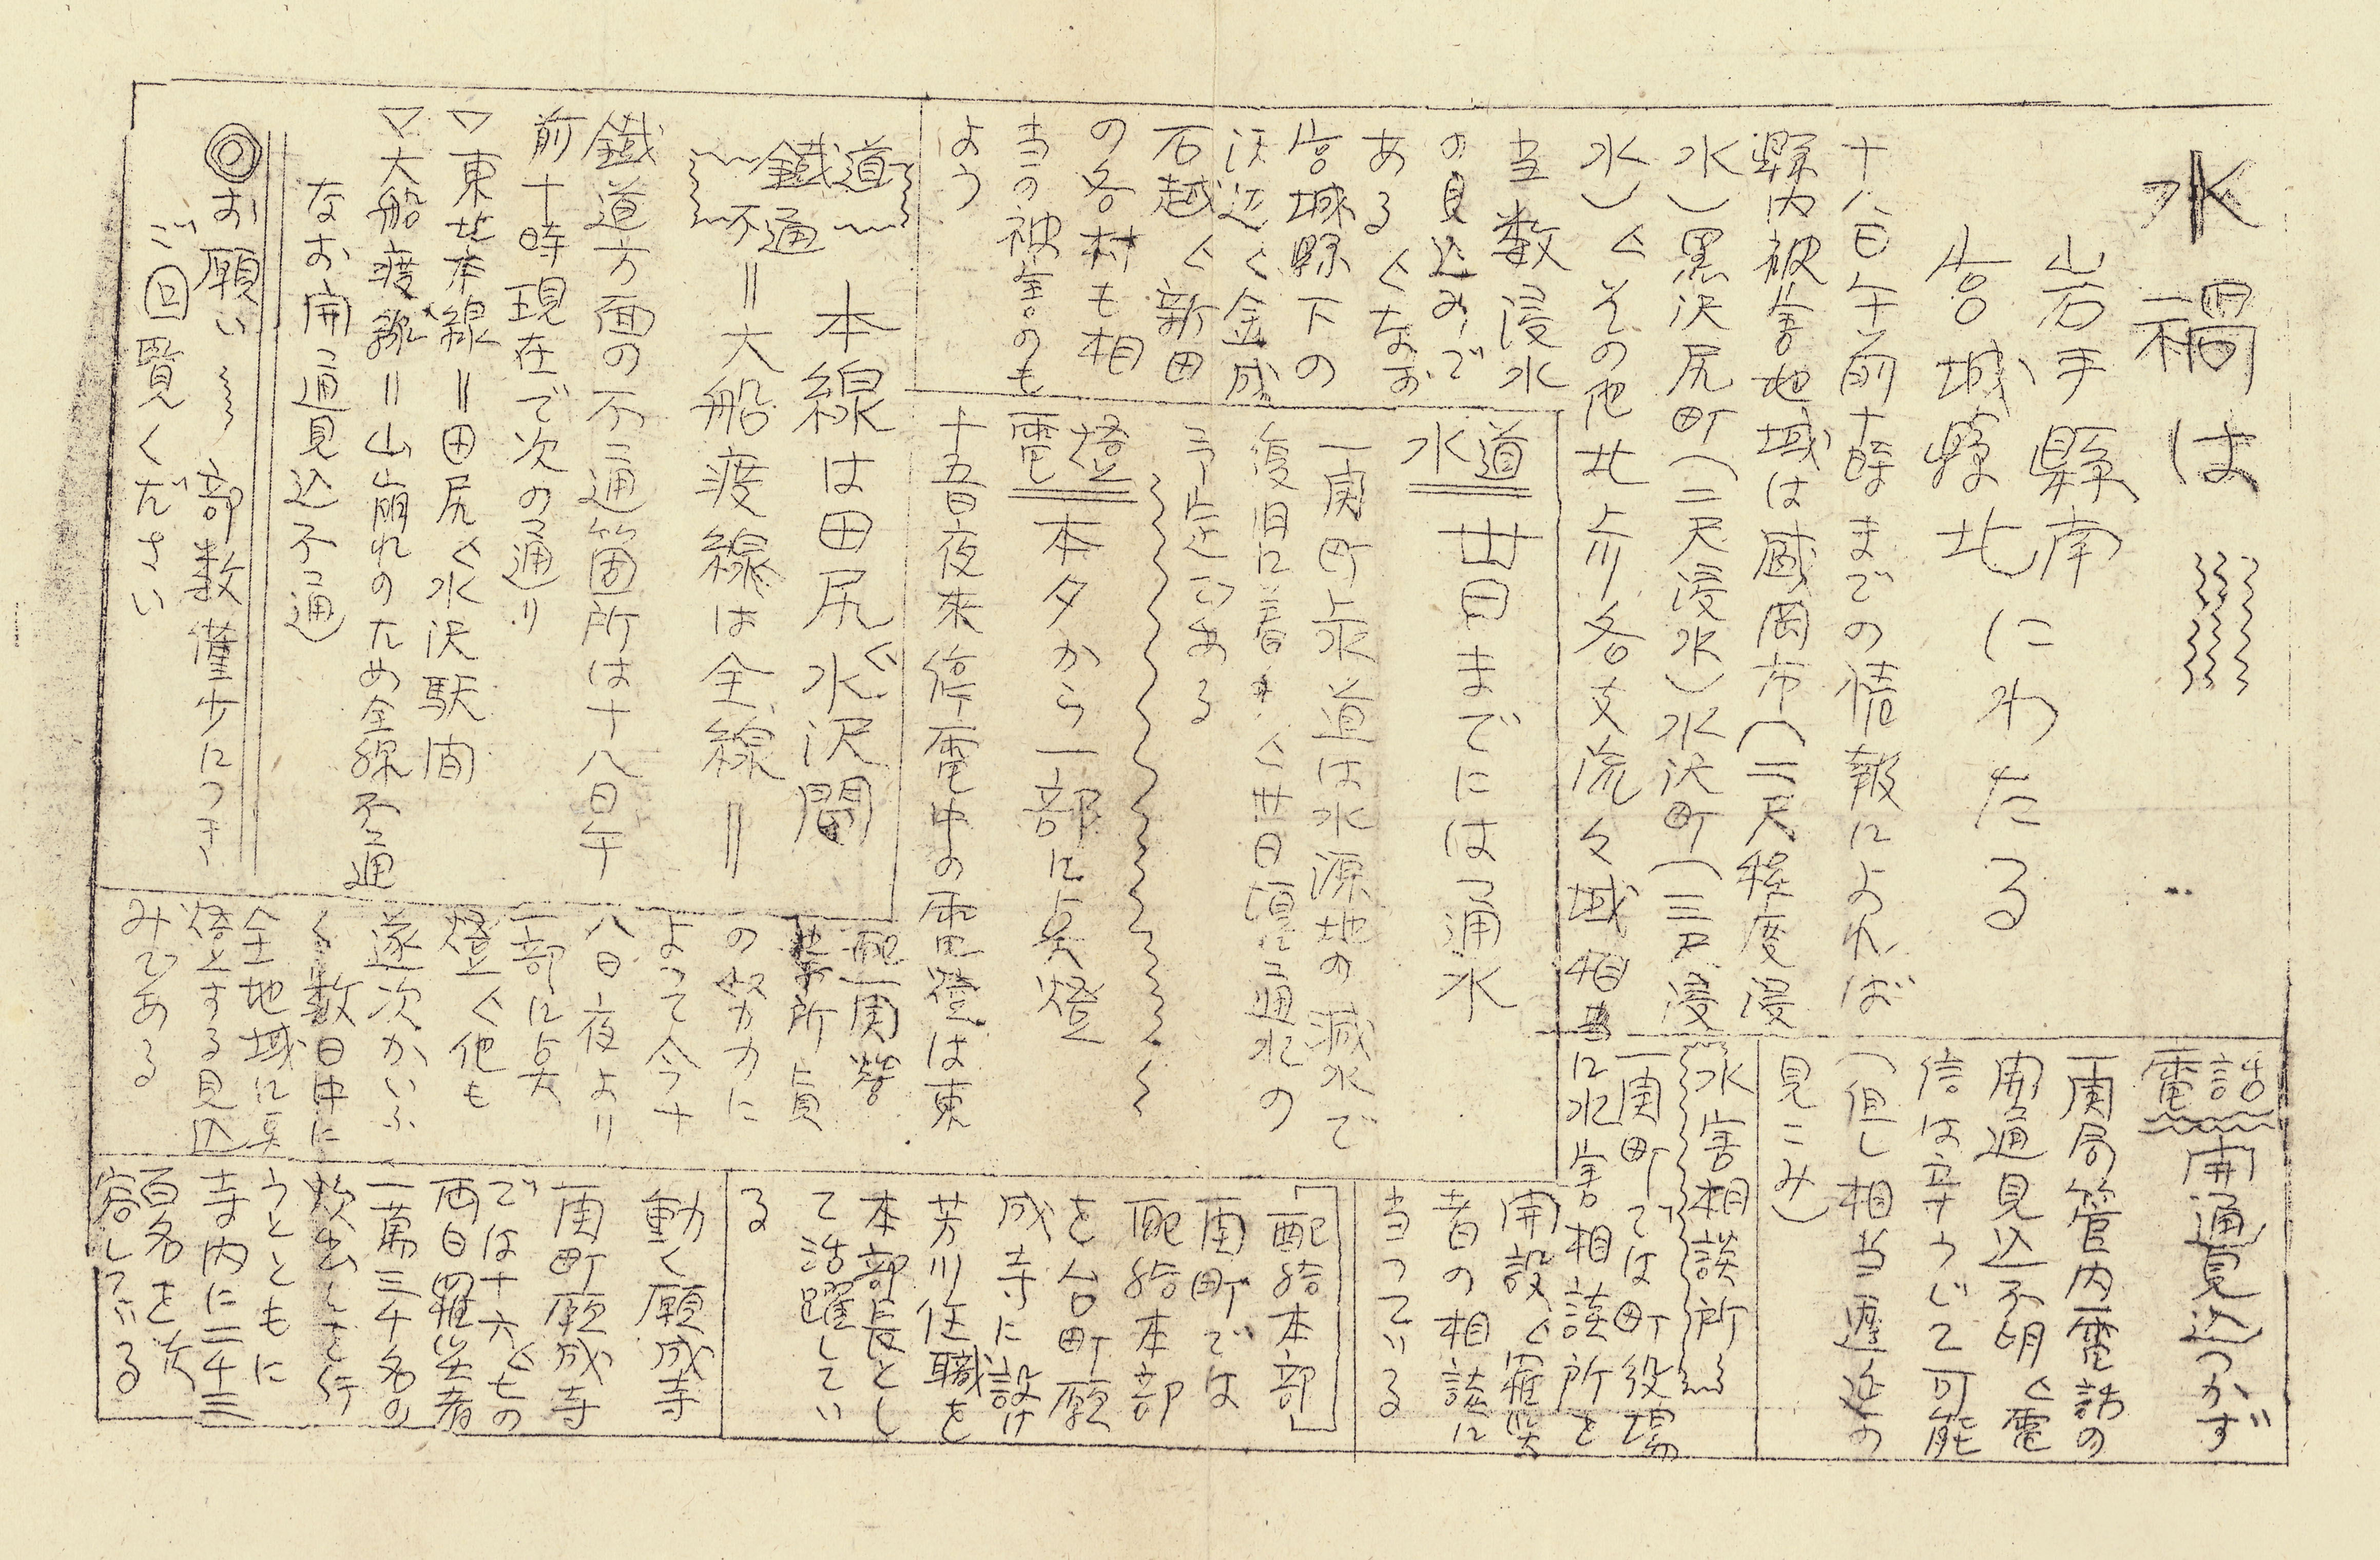 水禍は
岩手縣南
宮城縣北
にわたる
十八日午前十時までの情報によれば
縣内被害地域は盛岡市(二尺程度浸
水)黒沢尻町(二尺浸水)水沢町(三尺浸
水)〱その他北上川各支流々域相当
当数浸水
の見込みで
ある〱なお
宮城縣下の
沢辺〱金成
石越〱新田
の各村も相
当の被害のも
よう
電話
開通見込つかず
一関局管内電話の
開通見込不明〱電
信は辛うじて可能
(但し相当遅延の
見こみ)
水道
廿日までには通水
一関町上水道は水源地の減水で
復旧に着手〱廿日頃に通水の
予定である
水害相談所
一関町では町役場
に水害相談所を
開設〱罹災
者の相談に
当っている
電燈
本夕から一部に点燈
十五日夜来停電中の電燈は東
配一関営
業所員
の努力に
よって今十
八日夜より
一部に点
燈〱他も
遂次かいふ
く数日中に
全地域に点
燈とする見込
みである
鐵道
不通
本線は田尻〲水沢間
=大船渡線は全線=
鐵道方面の不通箇所は十八日午
前十時現在で次の通り
▽東北本線=田尻〱水沢駅間
▽大船渡線=山崩れのため全線不通
なお開通見込不通
配給本部
一関町では
配給本部
を台町願
成寺に設け
芳川住職を
本部長とし
て活躍してい
る
動く願成寺
一関町願成寺
では十六〱七の
両日罹災者
一萬三千名の
炊出しを行
うとともに
寺内に二千三
百名を
容している
◎お願い
部数僅少につき
ご回覧ください